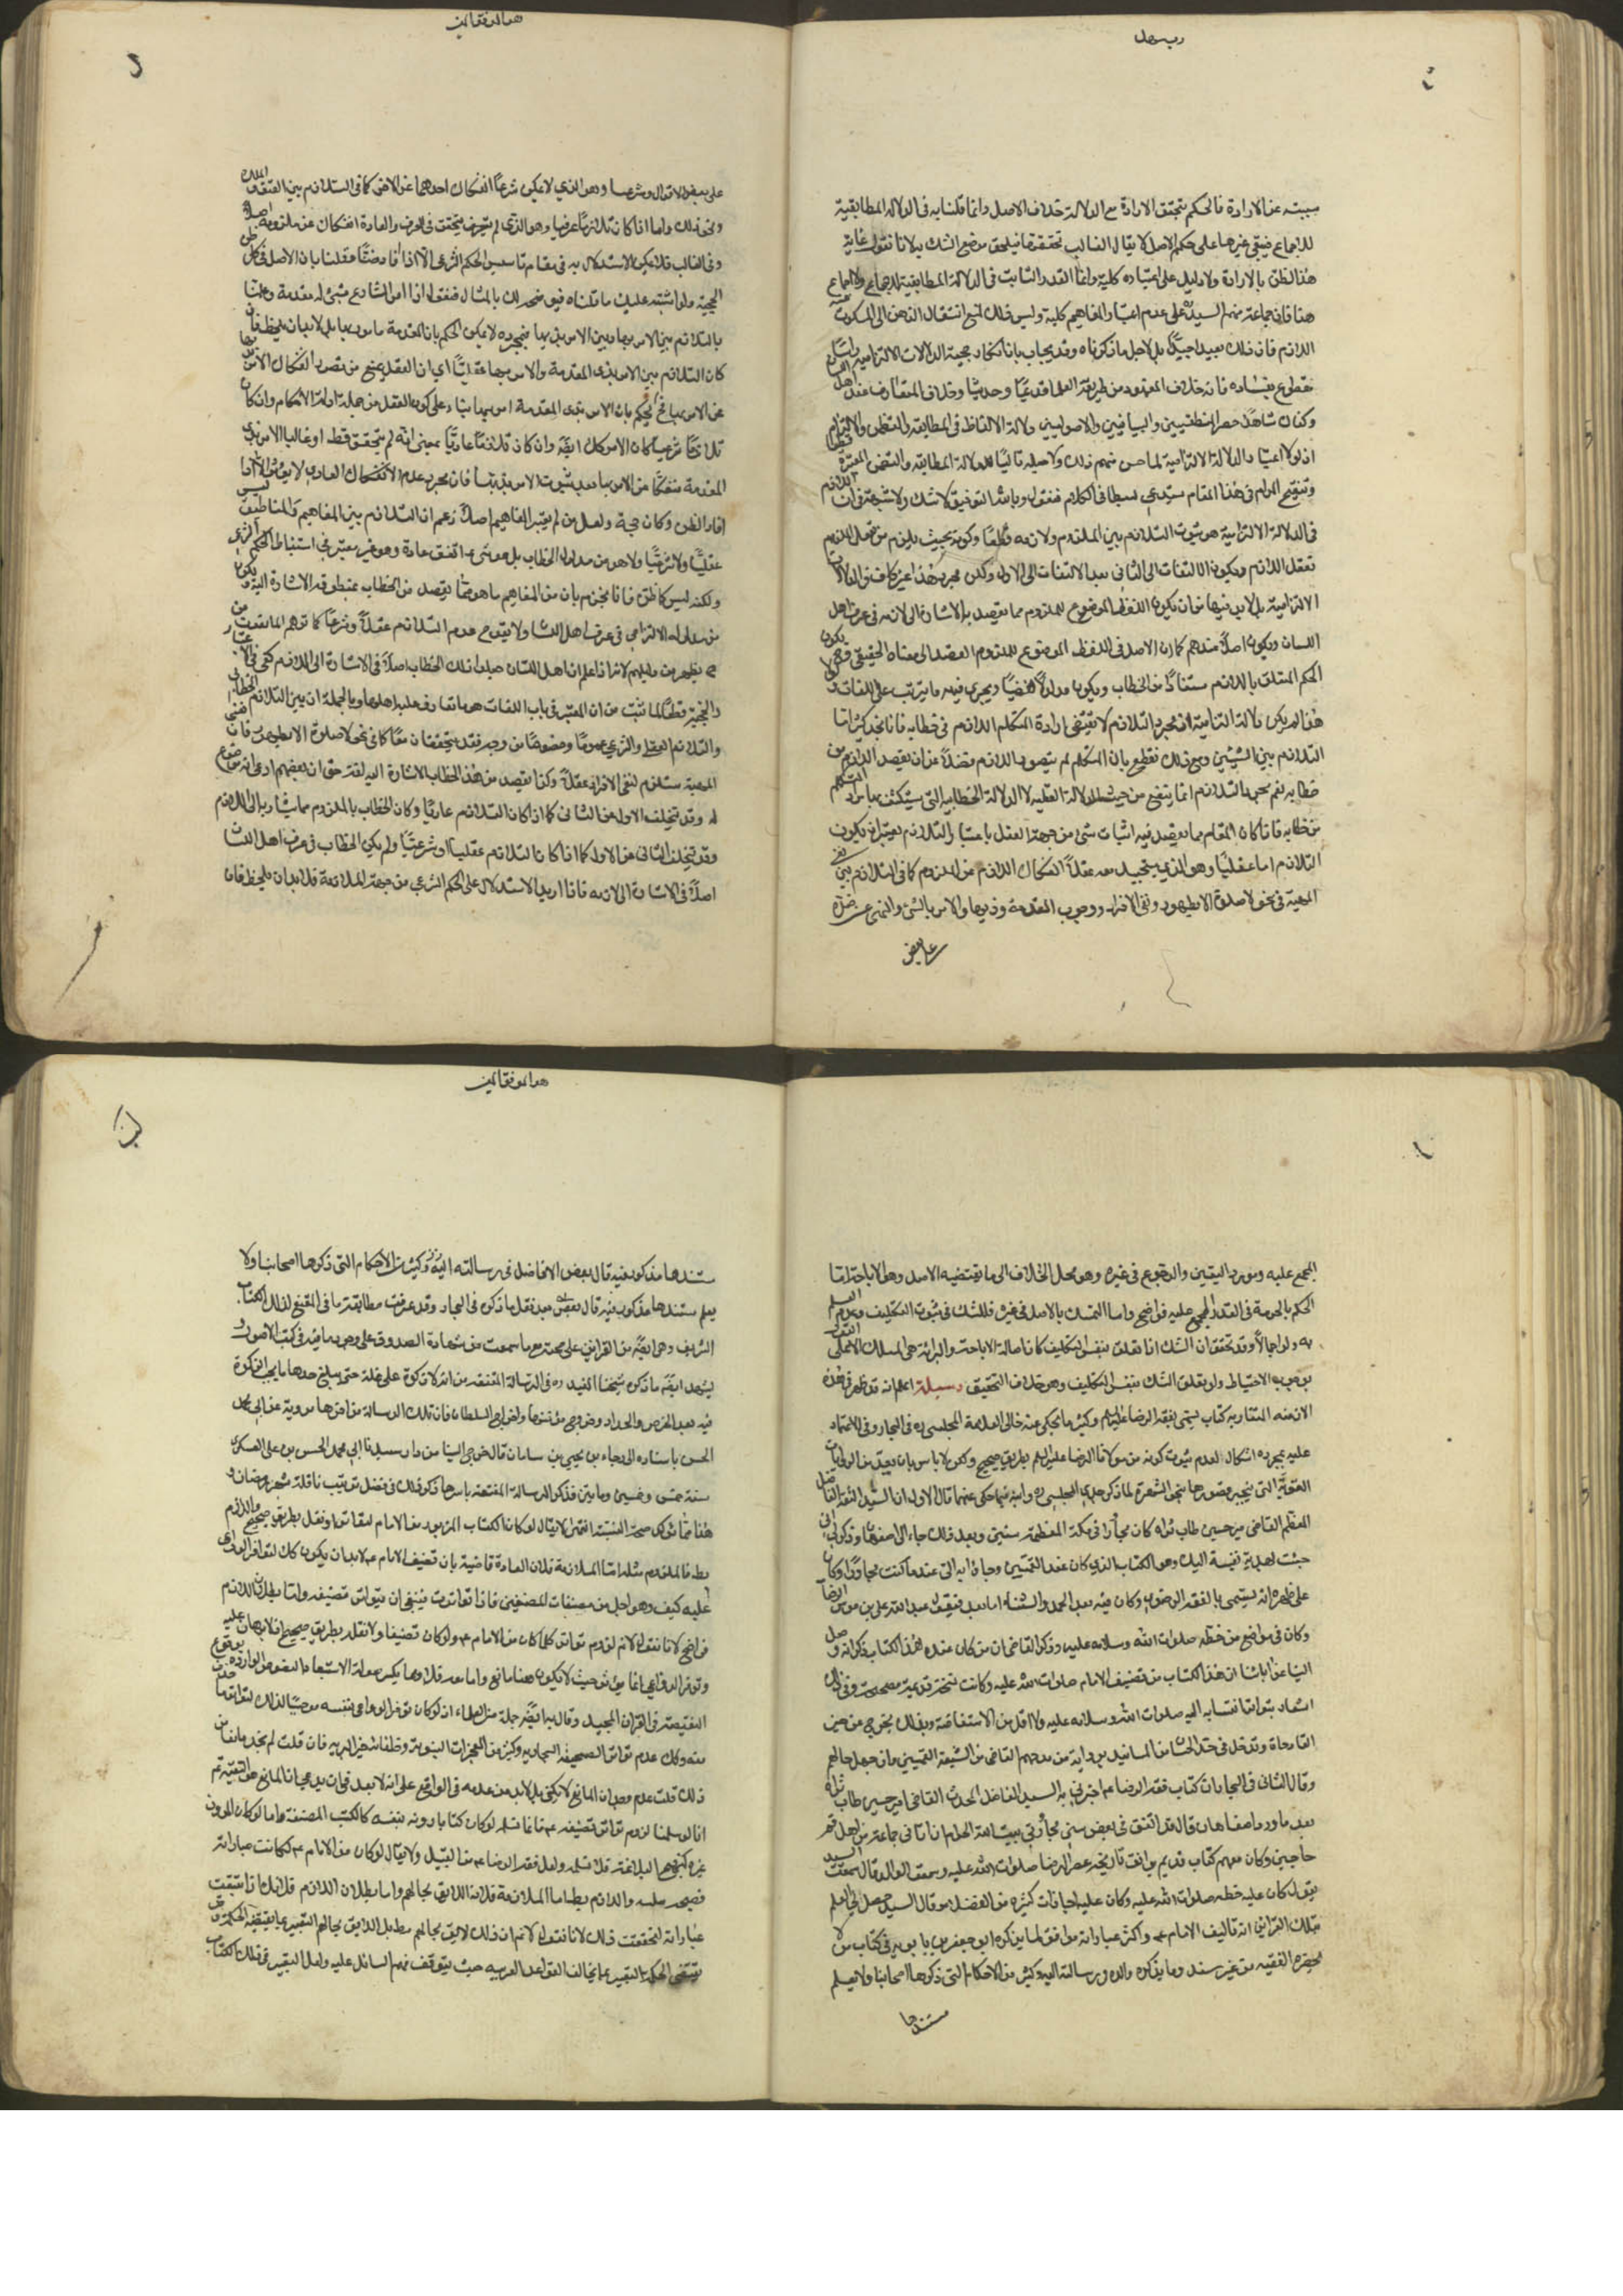 مبينه عن الارادة فالحكم بتحقق الارادة مع الدلالة خلاف الاصل وانما قلنا به فى الدلالة المطابقية
للاجماع فيبقى غيرها على حكم الاصل لا يقال الغالب تحققها فيلحق موضع الشك به لانا نقول غايته
هذا الظن بالارادة ولا دليل على اعتباره كلية وانما القدر الثابت فى الدلالة المطابقية للاجماع ولا اجماع
هنا فان جماعة منهم السيد على عدم اعتبار المفاهيم كلية وليس ذلك لمنع انتقال الذهن الى المسكوت عنه
اللازم فان ذلك بعيد جدا بل لاجل ما ذكرناه وقد يجاب بان انكار حجية الدلالات الالتزامية
مقطوع بفساده فانه خلاف المعهود من طريقة العلماء قديما وحديثا وخلاف المتعارف عند اهل
وكفاك شاهدا حصر المنطقيين والبيانيين والاصوليين دلالة الالفاظ فى المطابقة والتضمن والالتزام
اذ لولا اعتبار الدلالة الالتزامية لما حسن منهم ذلك ولا جعله تاليا للدلالة المطابقة والتضمن
وتنقيح المرام فى هذا المقام يستدعى بسطا فى الكلام فنقول وبالله التوفيق لا شك ولا شبهة فى ان
فى الدلالة الالتزامية هو ثبوت التلازم بين الملزوم ولازمه وكونه بحيث يلزم من تعقل الملزوم
تعقل اللازم ويكون الالتفات الى الثانى بعد الالتفات الى الاول ولكن مجرد هذا غير كاف فى الدلالات
الالتزامية بل لابد فيها من ان يكون اللفظ الموضوع للملزوم مما يقصد به الاشارة الى لازمه فى عرف اهل
اللسان ويكون اصلا عندهم كما ان الاصل فى اللفظ الموضوع للملزوم القصد الى معناه الحقيقى
الحكم المتعلق باللازم مستفادا من الخطاب ويكون مدلولا لفظيا ويجرى فيه ما يترتب على اللغات
هذا لم يكن دلالة التزامية اذ مجرد التلازم لا يقتضى ارادة المتكلم اللازم فى خطابه فانا نجد كثيرا ما
التلازم بين الشيئين ومع ذلك نقطع بان المتكلم لم يتصور اللازم فضلا عن ان يقصد اللازم من
خطابه نعم مجرد التلازم انما ينفع من حيث الدلالة العقلية لا الدلالة الخطابية التى يستكشف بها مراد المتكلم
من خطابه فاذا كان المقام مما يقصد فيه اثبات شىء من جهة العقل باعتبار التلازم يعتبر ان يكون
التلازم اما عقليا وهو الذى يستحيل معه عقلا انفكاك اللازم عن الملزوم كما فى التلازم بين نفى
المهية فى نحو لا صلوة الا بطهور ونفى الافراد ووجوب المقدمة وذيها والامر بالشىء والنهى عن ضده
على بعض
هو الموفق المعين
على بعض الاقوال وشرعيا وهو الذى لا يمكن شرعا انفكاك احدهما عن الاخر كما فى التلازم بين العتق والملك
ونحو ذلك واما اذا كان تلازما عرفيا وهو الذى لم يتحقق فى العرف والعادة انفكاك عن ملزومه اصلا
وفى الغالب فلا يمكن الاستدلال به فى مقام تاسيس الحكم الشرعى الا اذا افاد ظنا وقلنا بان الاصل فى كل ظن
الحجية ولو اشتبه عليك ما قلناه فنوضحه لك بالمثال فنقول اذا امر الشارع بشىء له مقدمة وعلمنا
بالتلازم بين الامر بها وبين الامر بذيها فبمجرده لا يمكن الحكم بان المقدمة مامور بها بل لابد ان يلاحظ فان
كان التلازم بين الامر بذى المقدمة والامر بها عقليا اى ان العقل يمنع من تصور انفكاك الامر
عن الامر بها فنحكم بان الامر بذى المقدمة امر بها بناء على كون العقل من جملة ادلة الاحكام وان كان
تلازما شرعيا كان الامر كذلك ايضا وان كان تلازما عاديا بمعنى انه لم يتحقق قط او غالبا الامر بذى
المقدمة منفكا عن الامر بها فان مجرد عدم الانفكاك العادى لا يؤثر الا اذا
افاد الظن وكان حجة ولعل من لم يعتبر المفاهيم اصلا زعم ان التلازم بين المفاهيم والمناطيق ليس
عقليا ولا شرعيا ولا هو من مدلول الخطاب بل هو شىء اتفق عادة وهو غير معتبر فى استنباط الحكم الشرعى
ولكنه ليس كما ظن فانا نجزم بان من المفاهيم ما هو مما يقصد من الخطاب بمنطوقه الاشارة اليه ويكون
من مدلوله الالتزامى فى عرف اهل اللسان ولا يقدح عدم التلازم عقلا وشرعا كما توهم المانعون من
كما يظهر من دليلهم لانه اذا علم ان اهل اللسان جعلوا ذلك الخطاب اصلا فى الاشارة الى اللازم كفى فى الاعتبار
والحجية قطعا لما ثبت من ان المعتبر فى باب اللغات هو ما تعارف عليه اهلها وبالجملة ان بين التلازم الخطابى
والتلازم العقلى والشرعى عموما وخصوصا من وجه فقد يتحققان معا كما فى نحو لا صلوة الا بطهور فان نفى
المهية مستلزم لنفى الافراد عقلا وكذا يقصد من هذا الخطاب الاشارة اليه لغة حتى ان بعضهم ادعى انه موضوع
له وقد يتخلف الاول عن الثانى كما اذا كان التلازم عاديا وكان الخطاب بالملزوم مما يشار به الى اللازم
وقد يتخلف الثانى عن الاول كما اذا كان التلازم عقليا او شرعيا ولم يكن الخطاب فى عرف اهل اللسان
اصلا فى الاشارة الى لازمه فاذا اريد الاستدلال على الحكم الشرعى من جهة الملازمة فلابد ان يلاحظ فان
المجمع عليه ومورد اليقين والرجوع فى غيره وهو محل الخلاف الى ما يقتضيه الاصل وهو الاباحة اما
الحكم بالحرمة فى القدر المجمع عليه فواضح واما التمسك بالاصل فى غيره فللشك فى ثبوت التكليف وعدم العلم
به ولو اجمالا وقد تحقق ان الشك اذا تعلق بنفس التكليف كان اصالة الاباحة والبرائة هى المسلك الا على القول
بوجوب الاحتياط ولو تعلق الشك بنفس التكليف وهو خلاف التحقيق وسيلة اعلم انه قد ظهر فى هذه
الازمنة المتقاربه كتاب يسمى بفقه الرضا عليه السلام وكثيرا ما يحكى عنه خالى العلامة المجلسى ره فى البحار وفى الاعتماد
عليه بمجرده اشكال لعدم ثبوت كونه من مولانا الرضا عليه السلم بطريق صحيح ولكن لا باس بان يعد من الروايات
القوية التى ينجبر قصورها بنحو الشهرة لما ذكر جدى المجلسى ره وابنه فيما حكى عنهما قال الاول ان السيد الثقة الفاضل
المعظم القاضى مير حسين طاب ثراه كان مجاورا فى مكة المعظمة سنين وبعد ذلك جاء الى اصفهان وذكر لى انى
جئت بهدية نفيسة اليك وهو الكتاب الذى كان عند القميين وجاؤا به الى عندما كنت مجاورا وكان
على ظهره انه يسمى بالفقه الرضوى وكان فيه بعد الحمد والثناء اما بعد فيقول عبد الله على بن موسى الرضا
وكان فى مواضع من خطه صلوات الله وسلامه عليه وذكر القاضى ان من كان عنده هذا الكتاب ذكر انه وصل
الينا عن ابائنا ان هذا الكتاب من تصنيف الامام صلوات الله عليه وكانت نسخة قديمة مصححة وفى ذلك
اشعار بتواتر انتسابه اليه صلوات الله وسلامه عليه ولا اقل من الاستفاضة وبذلك يخرج من حيز
الوجادة وتدخل فى حد الحسان من المسانيد برواية من مدحهم القاضى من الشيعة القميين وان جهل حالهم
وقال الثانى فى البحار ان كتاب فقه الرضا عم اخبرنى به السيد الفاضل المحدث القاضى امير حسين طاب ثراه
بعد ما ورد اصفاهان قال قد اتفق فى بعض سنى مجاورتى ببيت الله الحرام ان اتانى جماعة من اهل قم
حاجين وكان معهم كتاب قديم يوافق تاريخه عصر الرضا صلوات الله عليه وسمعت الوالد قال سمعت السيد
يقول كان عليه خطه صلوات الله عليه وكان عليه اجازات كثيرة من الفضلاء وقال السيد حصل لى العلم
بتلك القرائن انه تاليف الامام عم واكثر عباراته موافق لما يذكره ابو جعفر بن بابويه فى كتاب من لا
يحضره الفقيه من غير سند وما يذكره والده فى رسالته اليه وكثير من الاحكام التى ذكرها اصحابنا ولا يعلم
مستندها
هو الموفق المعين
مستندها مذكور فيه قال بعض الافاضل فى رسالته اليه وكثير من الاحكام التى ذكرها اصحابنا ولا
يعلم مستندها مذكور فيه قال بعض بعد نقل ما ذكره فى البحار وقد عرفت مطابقة ما فى المقنع لذلك الكتاب
الشريف وهى ايضا من القرائن على صحته مع ما سمعت من شهادة الصدوق على وجود ما فيه فى كتب الاصول و
يشهد ايضا ما ذكره شيخنا المفيد ره فى الرسالة المقنعة من انه لا زكوة على غلة حتى يبلغ حدها ما يجب الزكوة
فيه بعد الخرص والجداد وخروج مؤنتها وخراج السلطان فان تلك الرسالة من اخرها مروية عن ابى محمد
الحسن باسناده الى رجاء بن يحيى بن سامان قال خرج الينا من دار سيدنا ابى محمد الحسن بن على العسكرى
سنة خمس وخمسين ومائتين فذكر الرسالة المقنعة باسرها ذكر ذلك فى فضل ترتيب نافلة شهر رمضان و
هذا مما يؤكد صحة النسبة انتهى لا يقال لو كان الكتاب المزبور من الامام لتواتر او نقل بطريق صحيح واللازم
بطل فالملزوم مثله اما الملازمة فلان العادة قاضية بان تصنيف الامام عم لابد ان يكون كك لتوافر الدواعى
عليه كيف وهو اجل من مصنفات المصنفين فاذا تواترت فينبغى ان يتواتر تصنيفه واما بطلان اللازم
فواضح لانا نقول لا نم لزوم تواتر كلما كان من الامام عم ولو كان تصنيفا ولا نقله بطريق صحيح اذ لا برهان عليه
وتوفر الدواعى انما يؤثر حيث لا يكون هناك مانع واما معه فلا وهنا يكسر صولة الاستبعاد النصوص الواردة بوقوع
النقيصة فى القران المجيد وقال بها ايضا جملة من العلماء اذ لو كان توفر الدواعى بنفسه موجبا لذلك لتواتر ما حذف
منه وكك عدم تواتر الصحيفة السجادية وكثير من المعجزات النبوية وخطبة شريفة فان قلت لم نجد مانعا من
ذلك قلت عدم وجدان المانع لا يكفى بل لابد من عدمه فى الواقع على انه لا بعد فى ان يدعى ان المانع هو التقية ثم
انا لو سلمنا لزوم تواتر تصنيفه عم فانما نسلمه لو كان كتابا دونه بنفسه كالكتب المصنفة واما لو كان المدون
غيره كنهج البلاغة فلا نسلم ولعل فقه الرضا عم من هذا القبيل ولا يقال لو كان من الامام عم لكانت عباراته
فصيحة سلسة واللازم بط اما الملازمة فلانه اللائق بحالهم واما بطلان اللازم فلانك اذا تتبعت
عباراته لتحققت ذلك لانا نقول لا نم ان ذلك لائق بحالهم مط بل اللائق بحالهم التعبير بما يقتضيه الحكمة وقد
يقتضى الحكمة التعبير بما يخالف القواعد العربية حيث يتوقف فهم السائل عليه ولعل التعبير فى ذلك الكتاب